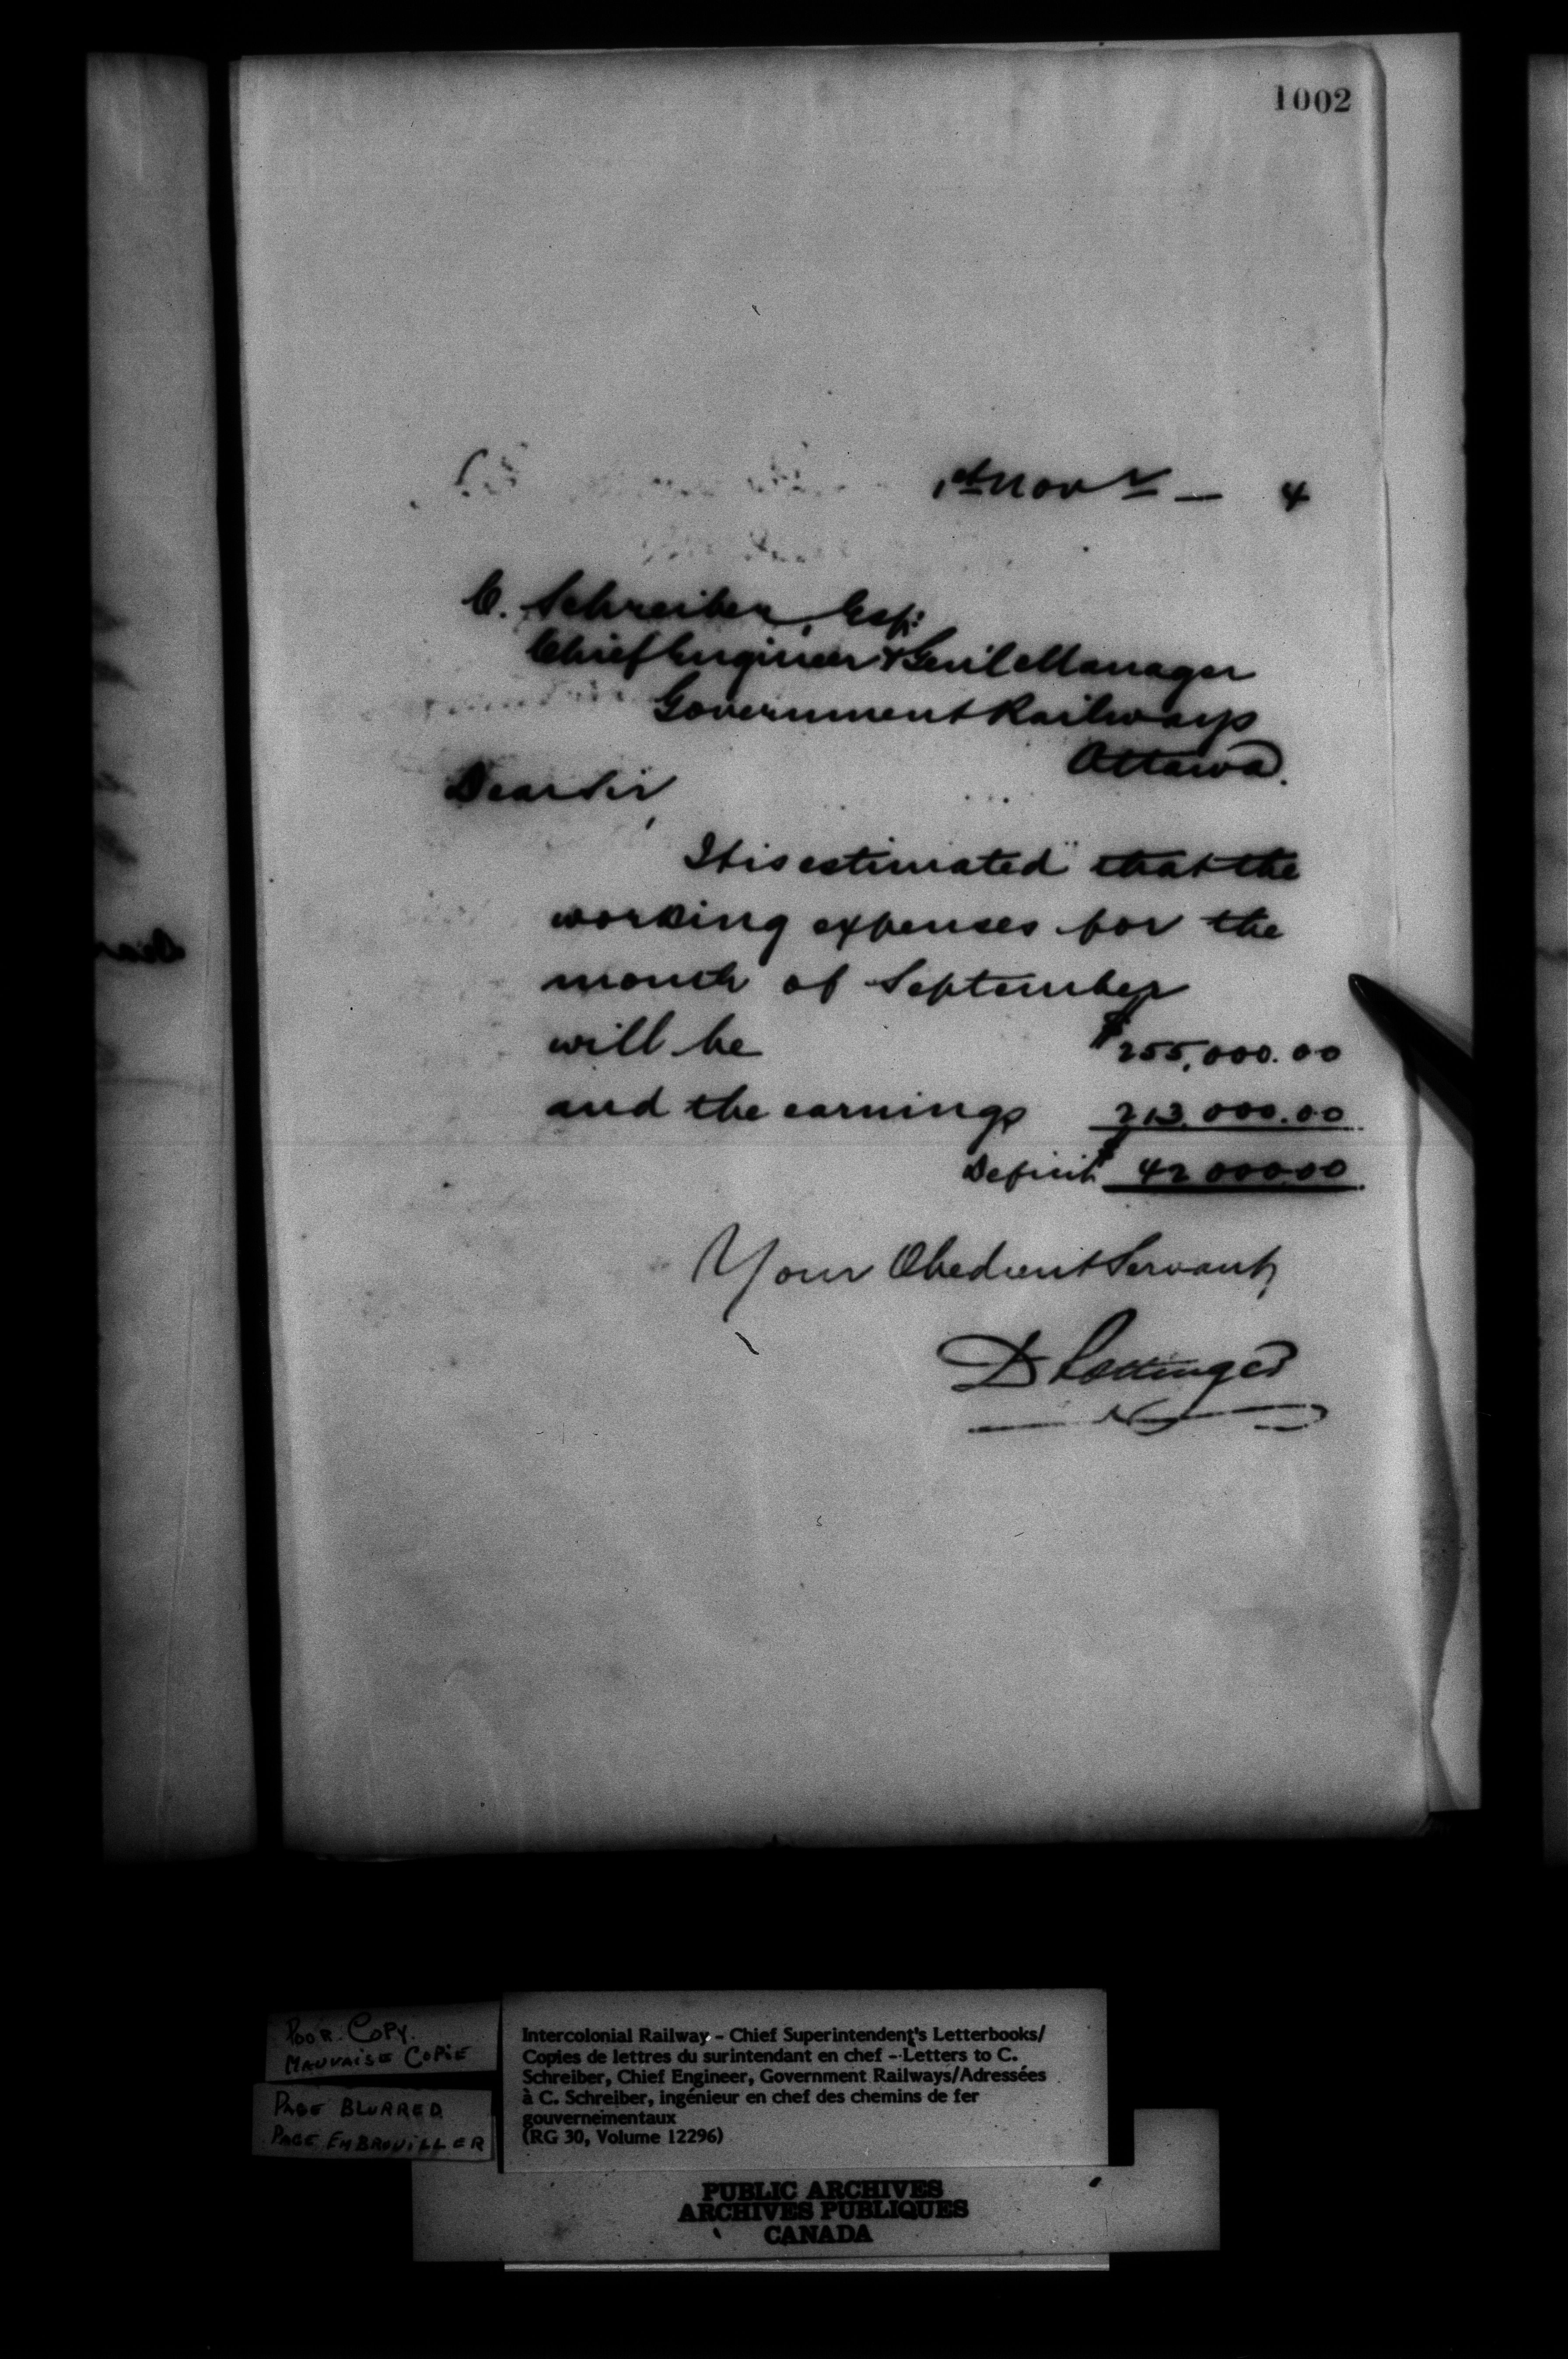 1002
1st Novr — 4
C. Schreiber, Esq:
Chief Engineer & Gen'l Manager
Government Railways
Ottawa.
Dear Sir,
It is estimated that the
working expenses for the
month of September
will be $255,000.00
and the earnings 213,000.00
Deficit $42 000 00
Your Obedient Servant,
D Pottinger
POOR COPY.
MAUVAISE COPIE
PAGE BLURRED
PAGE EMBROUILLER
Intercolonial Railway - Chief Superintendent's Letterbooks/
Copies de lettres du surintendant en chef - Letters to C.
Schreiber, Chief Engineer, Government Railways/Adressées
à C. Schreiber, ingénieur en chef des chemins de fer
gouvernementaux
(RG 30, Volume 12296)
PUBLIC ARCHIVES
ARCHIVES PUBLIQUES
CANADA